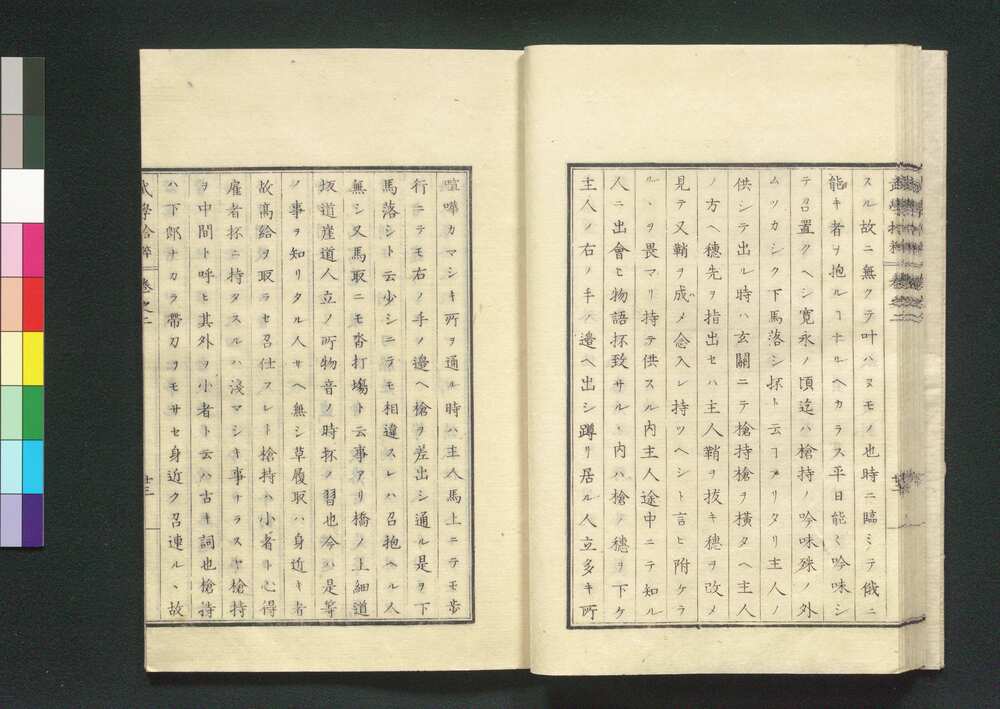 スル故ニ無クテ叶ハヌモノ也時ニ臨ミテ俄ニ
能キ者ヲ抱ルヿナルヘカラス平日能ミ吟味シ
テ召置クヘシ寛永ノ頃迄ハ槍持ノ吟味殊ノ外
ムツカシク下馬落シ抔ト云ヿアリタリ主人ノ
供シテ出ル時ハ玄關ニテ槍持槍ヲ横タヘ主人
ノ方ヘ穂先ヲ指出セハ主人鞘ヲ抜キ穂ヲ改メ
見テ又鞘ヲ成メ念入レ持ツヘシト言ヒ附ケラ
ルヽヲ畏マリ持テ供スル内主人途中ニテ知ル
人ニ出會ヒ物語抔致サルヽ内ハ槍ノ穂ヲ下ケ
主人ノ右ノ手ノ邉ヘ出シ蹲リ居ル人立多キ所
喧嘩カマシキ所ヲ通ル時ハ主人馬上ニテモ歩
行ニテモ右ノ手ノ邉ヘ槍ヲ差出シ通ル是ヲ下
馬落シト云少シニテモ相違スレハ召抱ヘル人
無シ又馬取ニモ沓打場ト云事アリ橋ノ上細道
坂道崖道人立ノ所物音ノ時抔ノ習也今ハ是等
ノ事ヲ知リタル人サヘ無シ草履取ハ身近キ者
故高給ヲ取ラセ召仕フレト槍持ハ小者ト心得
雇者抔ニ持タスルハ淺マシキ事ナラスヤ槍持
ヲ中間ト呼ヒ其外ヲ小者ト云ハ古キ詞也槍持
ハ下郎ナカラ帶刀ヲモサセ身近ク召連ルヽ故
武學拾粹 卷之二 廿三